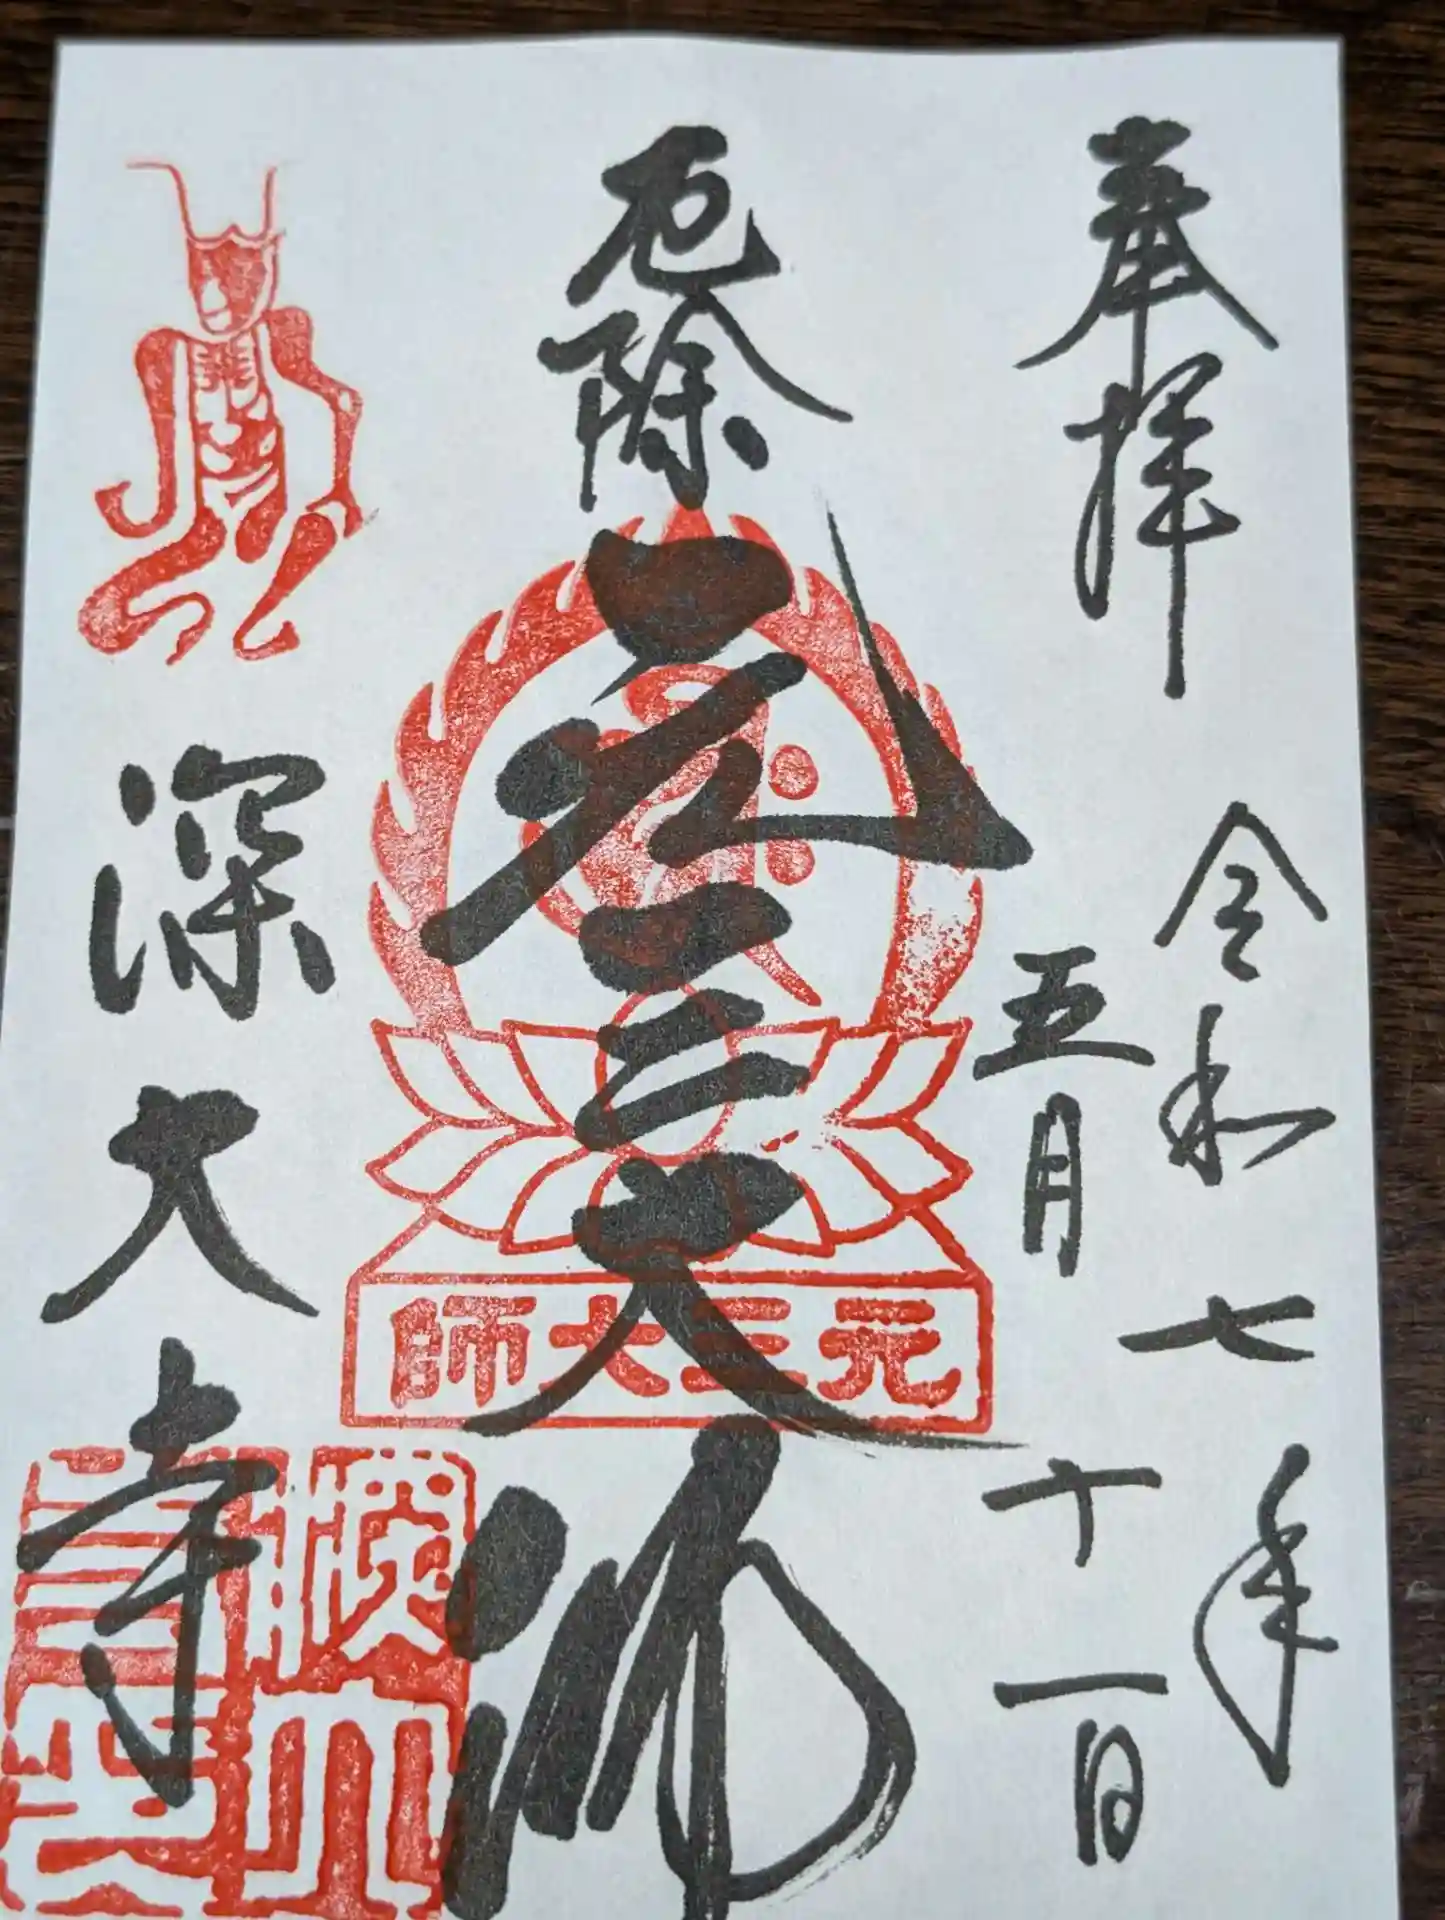 奉拝
令和七年
五月十一日
厄除
元三大師
師大三元
深大寺